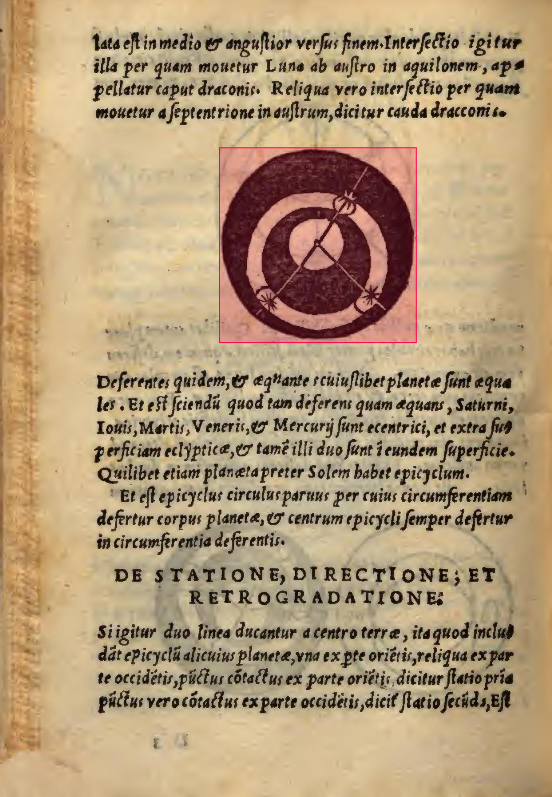 lata eſt in medio & anguſtior verſus finem. Interſectio igitur
illa per quam mouetur Luna ab auſtro in aquilonem, ap-
pellatur caput draconis. Reliqua vero interſectio per quam
mouetur a ſeptentrione in auſtrum, dicitur cauda dracconis.
Deferentes quidem, & æquante s cuiuſlibet planetæ ſunt æqua
les. Et eſt ſciendū quod tam deferens quam æquans, Saturni,
Iouis, Martis, Veneris, & Mercurij ſunt ecentrici, et extra ſu
perficiam eclypticæ, & tamē illi duo ſunt ī eundem ſuperficie.
Quilibet etiam planæta preter Solem habet epicyclum.
Et eſt epicyclus circulus paruus per cuius circumferentiam
defertur corpus planetæ, & centrum epicycli ſemper defertur
in circumferentia deferentis.
DE STATIONE, DIRECTIONE; ET
RETROGRADATIONE.
Si igitur duo linea ducantur a centro terræ, ita quod inclu
dāt epicyclū alicuius planetæ, vna ex pte oriētis, reliqua ex par
te occidētis, pūctus cōtactus ex parte oriētis dicitur ſtatio pria
pūctus vero cōtactus ex parte occidētis, dicit ſtatio ſecūda, Eſt